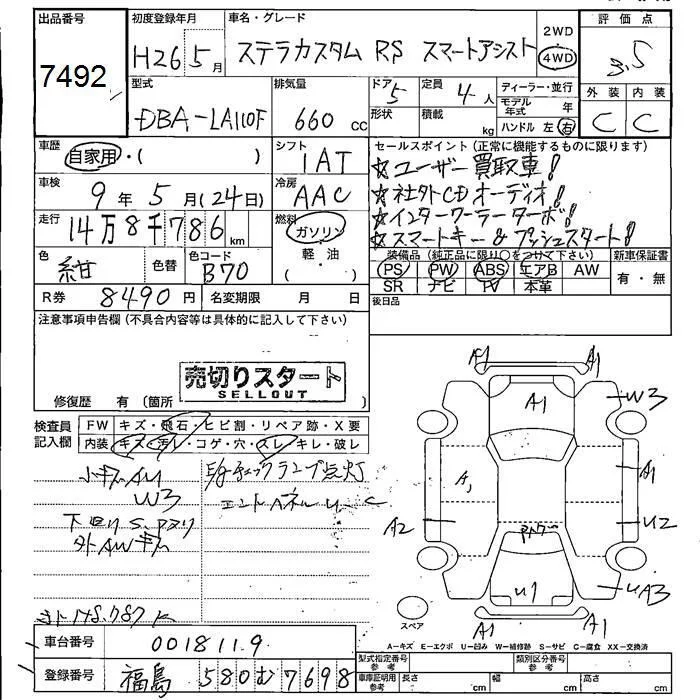 出品番号 初度登録年月 車名・グレード 2WD 評価点
7492 H26 5月 ステラカスタム RS スマートアシスト 4WD 3.5
型式 排気量 ドア 定員 ディーラー・並行 外装 内装
DBA-LA110F 660 cc 5 4人 モデル年式 年 C C
形状 積載 kg ハンドル 左 右
車歴 自家用・( ) シフト IAT セールスポイント(正常に機能するものに限ります)
☆ユーザー買取車!
車検 9年5月(24日) 冷房 AAC ☆社外CDオーディオ!
走行 14万8千786km 燃料 ガソリン ☆インタークーラーターボ!
軽・油 ( ) ☆スマートキー&プッシュスタート!
色 紺 色替 色コード B70 装備品(純正品に限り○をつけて下さい) 新車保証書
PS PW ABS エアB AW 有・無
SR ナビ TV 本革
R券 8490円 名変期限 月 日 後日品
注意事項申告欄(不具合内容等は具体的に記入して下さい)
売切りスタート
SELLOUT
修復歴 有(箇所 )
検査員記入欄 FW キズ・飛石・ヒビ割・リペア跡・X要
内装 キズ・汚レ・コゲ・穴・スレ・キレ・破レ
小キズAU E/gチェックランプ点灯
W3
下回りS、
外AWキズ
A1 A1
A1 W3
A1 A1
A2 U2
U1 UA3
A1 A1
スペア
A-キズ E-エクボ U-凹み W-補修跡 S-サビ C-腐食 XX-交換済
車台番号 0018119 型式指定番号参考 類別区分番号参考
登録番号 福島 580 む 7698 車庫証明用参考 長さ cm 幅 cm 高さ cm